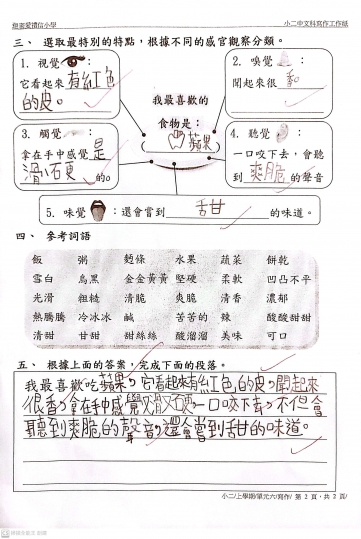 小二中文科寫作工作紙
三、 選取最特別的特點，根據不同的感官觀察分類。
1. 視覺：
它看起來有紅色
的皮。
2. 嗅覺：
聞起來很 香
我最喜歡的
食物是：
蘋果
3. 觸覺：
拿在手中感覺是
滑 的。
4. 聽覺：
一口咬下去，會聽
到爽脆的聲音
5. 味覺：還會嘗到 甜 的味道。
四、 參考詞語
飯 粥 麪條 水果 蔬菜 餅乾
雪白 烏黑 金金黃黃 堅硬 柔軟 凹凸不平
光滑 粗糙 清脆 爽脆 清香 濃郁
熱騰騰 冷冰冰 鹹 苦苦的 辣 酸酸甜甜
清甜 甘甜 甜絲絲 酸溜溜 美味 可口
五、 根據上面的答案，完成下面的段落。
我最喜歡吃蘋果，它看起來有紅色的皮，聞起來
很香，拿在手中感覺又滑又硬，一口咬下去，不但會
聽到爽脆的聲音，還會嘗到甜的味道。
小二/上學期/單元六/寫作/ 第 2 頁，共 2 頁/